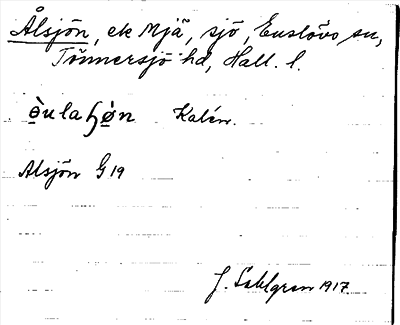 Ålsjön, ek Mjä, sjö, Enslövs sn,
Tönnersjö hd, Hall. l.
Kalén.
Alsjön G 19
J. Sahlgren 1917